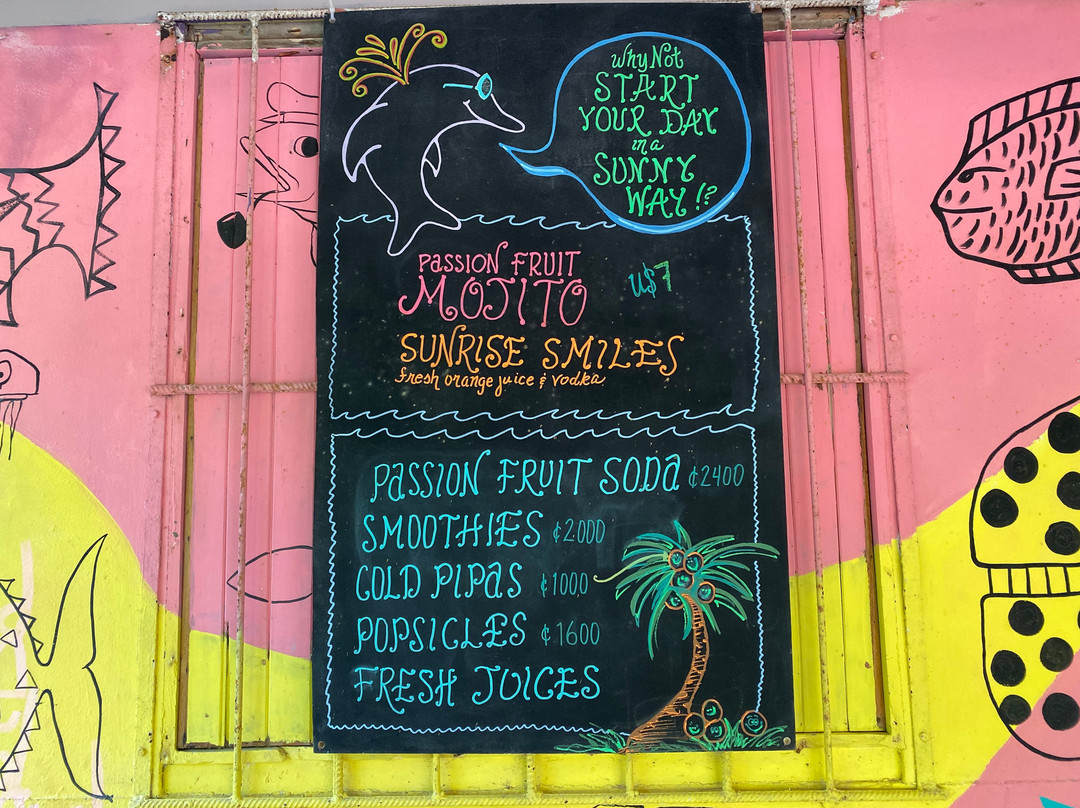 Why Not
START
YOUR DAY
in a
SUNNY
WAY!?
PASSION FRUIT
MOJITO U$7
SUNRISE SMILES
fresh orange juice & vodka
PASSION FRUIT SODA ¢2400
SMOOTHIES ¢2.000
COLD PIPAS ¢1000
POPSICLES ¢1600
FRESH JUICES